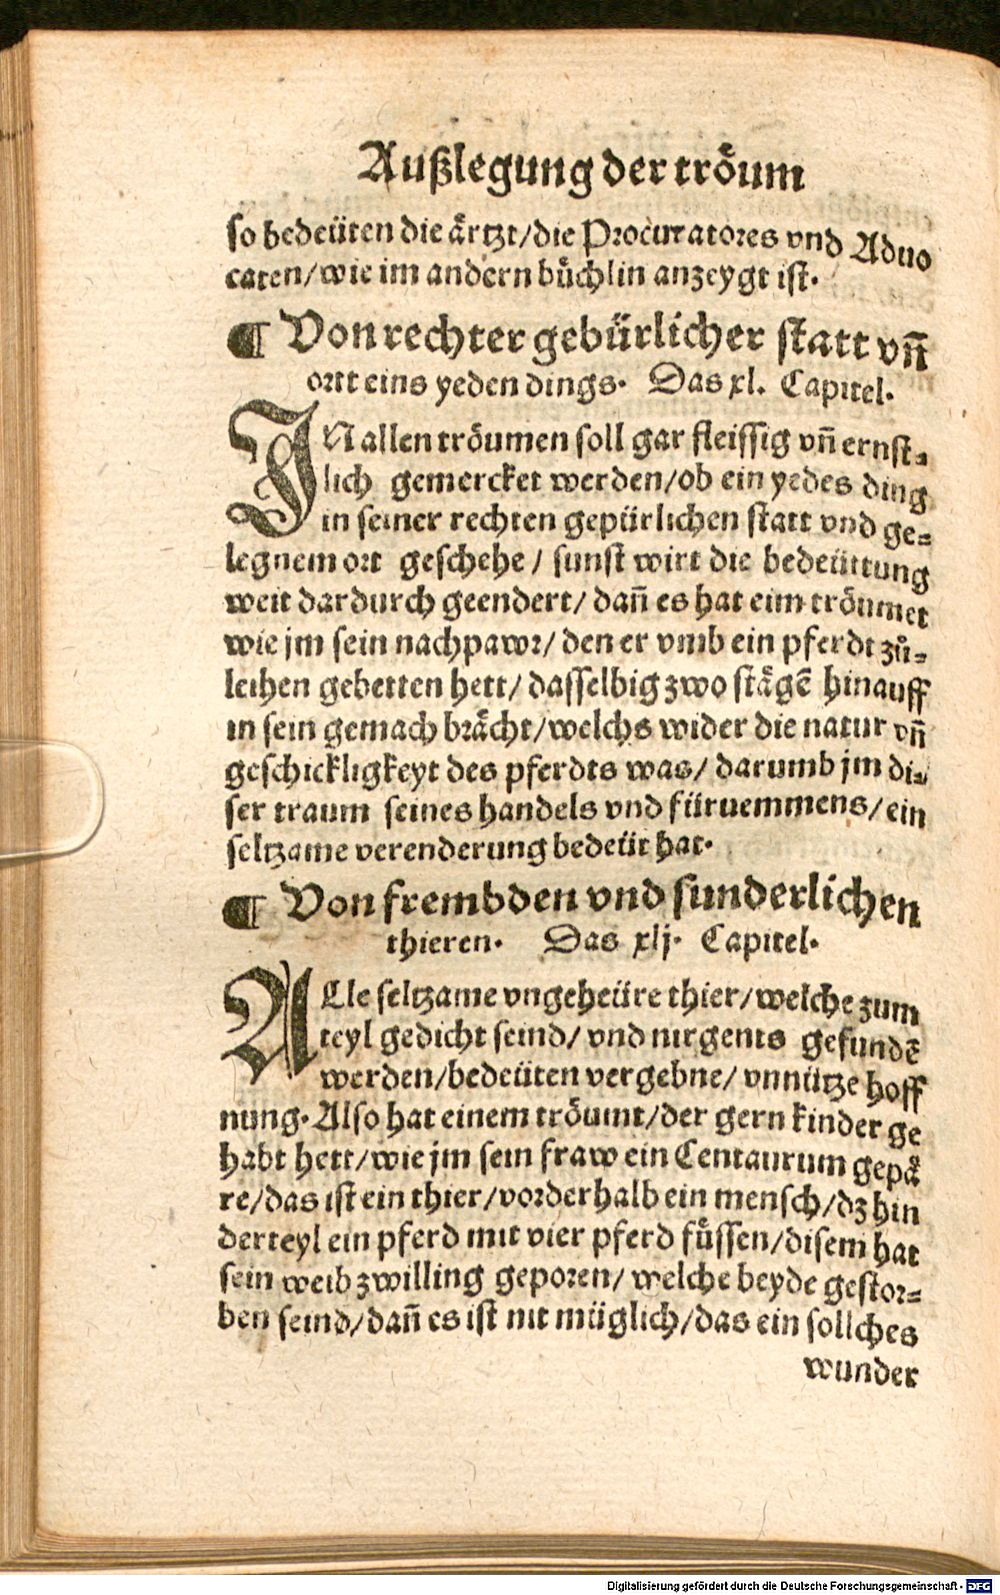 Außlegung der tröum
so bedeüten die ärtzt/die Procuratores vnd Aduo
caten/wie im andern büchlin anzeygt ist.
¶ Von rechter gebürlicher statt vñ
ortt eins yeden dings. Das xl. Capitel.
IN allen tröumen soll gar fleissig vñ ernst⸗
lich gemercket werden/ob ein yedes ding
in seiner rechten gepürlichen statt vnd ge⸗
legnem ort geschehe/ sunst wirt die bedeüttung
weit dardurch geendert/ dañ es hat eim tröumet
wie jm sein nachpawr/ den er vmb ein pferdt zů⸗
leihen gebetten hett/ dasselbig zwo stägẽ hinauff
in sein gemach brächt/welchs wider die natur vñ
geschickligkeyt des pferdts was/ darumb jm di⸗
ser traum seines handels vnd fürnemmens/ein
seltzame verenderung bedeüt hat.
¶ Von frembden vnd sunderlichen
thieren. Das xlj. Capitel.
ALle seltzame vngeheüre thier/welche zum
teyl gedicht seind/ vnd nirgents gefundẽ
werden/bedeüten vergebne/ vnnütze hoff
nung. Also hat einem tröumt/der gern kinder ge
habt hett/wie jm sein fraw ein Centaurum gepä
re/das ist ein thier/vorderhalb ein mensch/dz hin
derteyl ein pferd mit vier pferd füssen/disem hat
sein weib zwilling geporen/ welche beyde gestor⸗
ben seind/dañ es ist nit müglich/das ein sollches
wunder
Digitalisierung gefördert durch die Deutsche Forschungsgemeinschaft - DFG